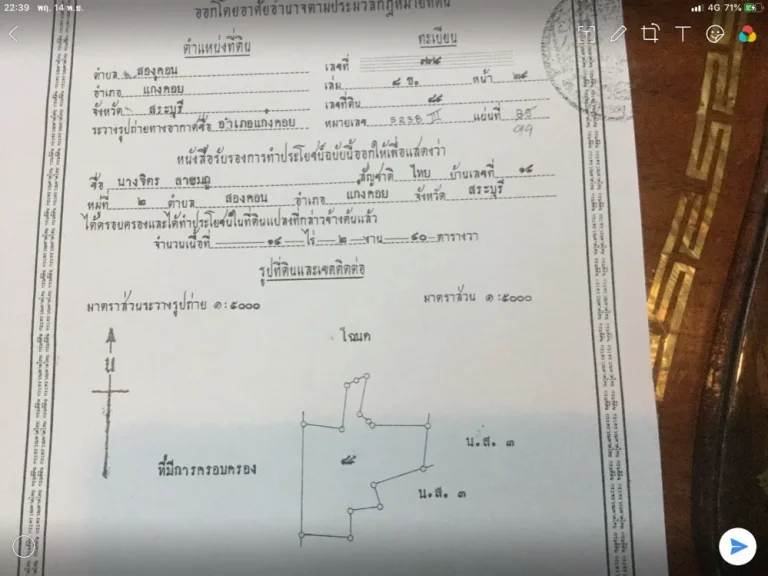 22:39 พฤ. 14 พ.ย.
4G 71%
T
ออกโดยอาศัยอำนาจตามประมวลกฎหมายที่ดิน
ตำแหน่งที่ดิน
ทะเบียน
ตำบล สองคอน
เลขที่ ๗๗๔
อำเภอ แก่งคอย
เล่ม ๘ ข. หน้า ๒๔
จังหวัด สระบุรี
เลขที่ดิน ๕๕
ระวางรูปถ่ายทางอากาศชื่อ อำเภอแก่งคอย
หมายเลข 5238 III แผ่นที่
99
หนังสือรับรองการทำประโยชน์ฉบับนี้ออกให้เพื่อแสดงว่า
ชื่อ นางจิตร สัญชาติ ไทย บ้านเลขที่ ๑๔
หมู่ที่ ๒ ตำบล สองคอน อำเภอ แก่งคอย จังหวัด สระบุรี
ได้ครอบครองและได้ทำประโยชน์ในที่ดินแปลงที่กล่าวข้างต้นแล้ว
จำนวนเนื้อที่ ๑๔ ไร่ ๒ งาน ๔๐ ตารางวา
รูปที่ดินและเขตติดต่อ
มาตราส่วนระวางรูปถ่าย ๑ : ๕๐๐๐
มาตราส่วน ๑ : ๕๐๐๐
โฉนด
น
น.ส. ๓
ที่มีการครอบครอง
๕๕
น.ส. ๓